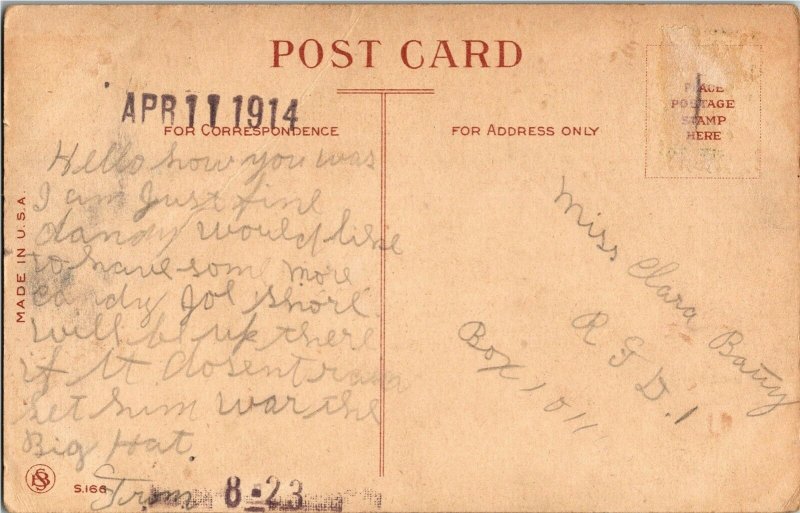 POST CARD
APR 11 1914
FOR CORRESPONDENCE
FOR ADDRESS ONLY
PLACE
POSTAGE
STAMP
HERE
MADE IN U.S.A.
Hello how you was
I am Just fine
dandy would like
to have some more
candy Joe Shore
will be up there
if it dosent rain
let him war the
Big Hat.
From
Miss Clara Batty
R F D. 1
Box 1011
S.166
8-23